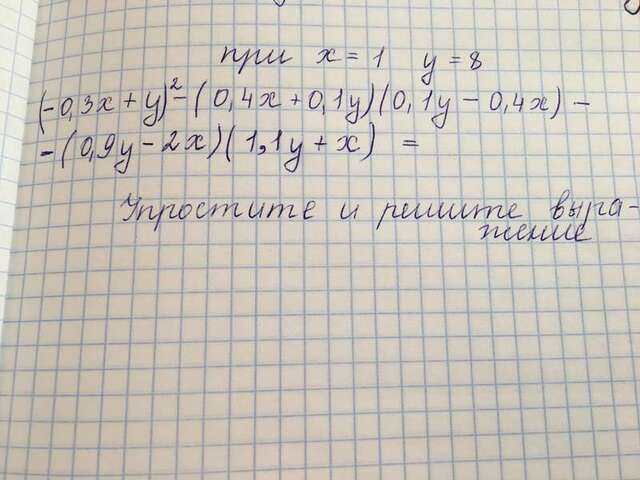 при x = 1 y = 8
(-0,3x + y)² - (0,4x + 0,1y)(0,1y - 0,4x) -
- (0,9y - 2x)(1,1y + x) =
Упростите и решите выра-
жение